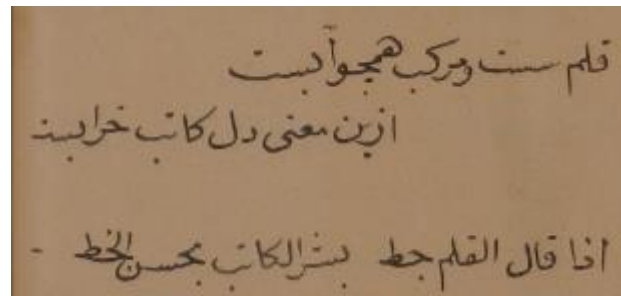 قلم سست ومرکب همچو آبست
ازین معنی دل کاتب خرابست
اذا قال القلم جط بشر الکاتب بحسن الخط